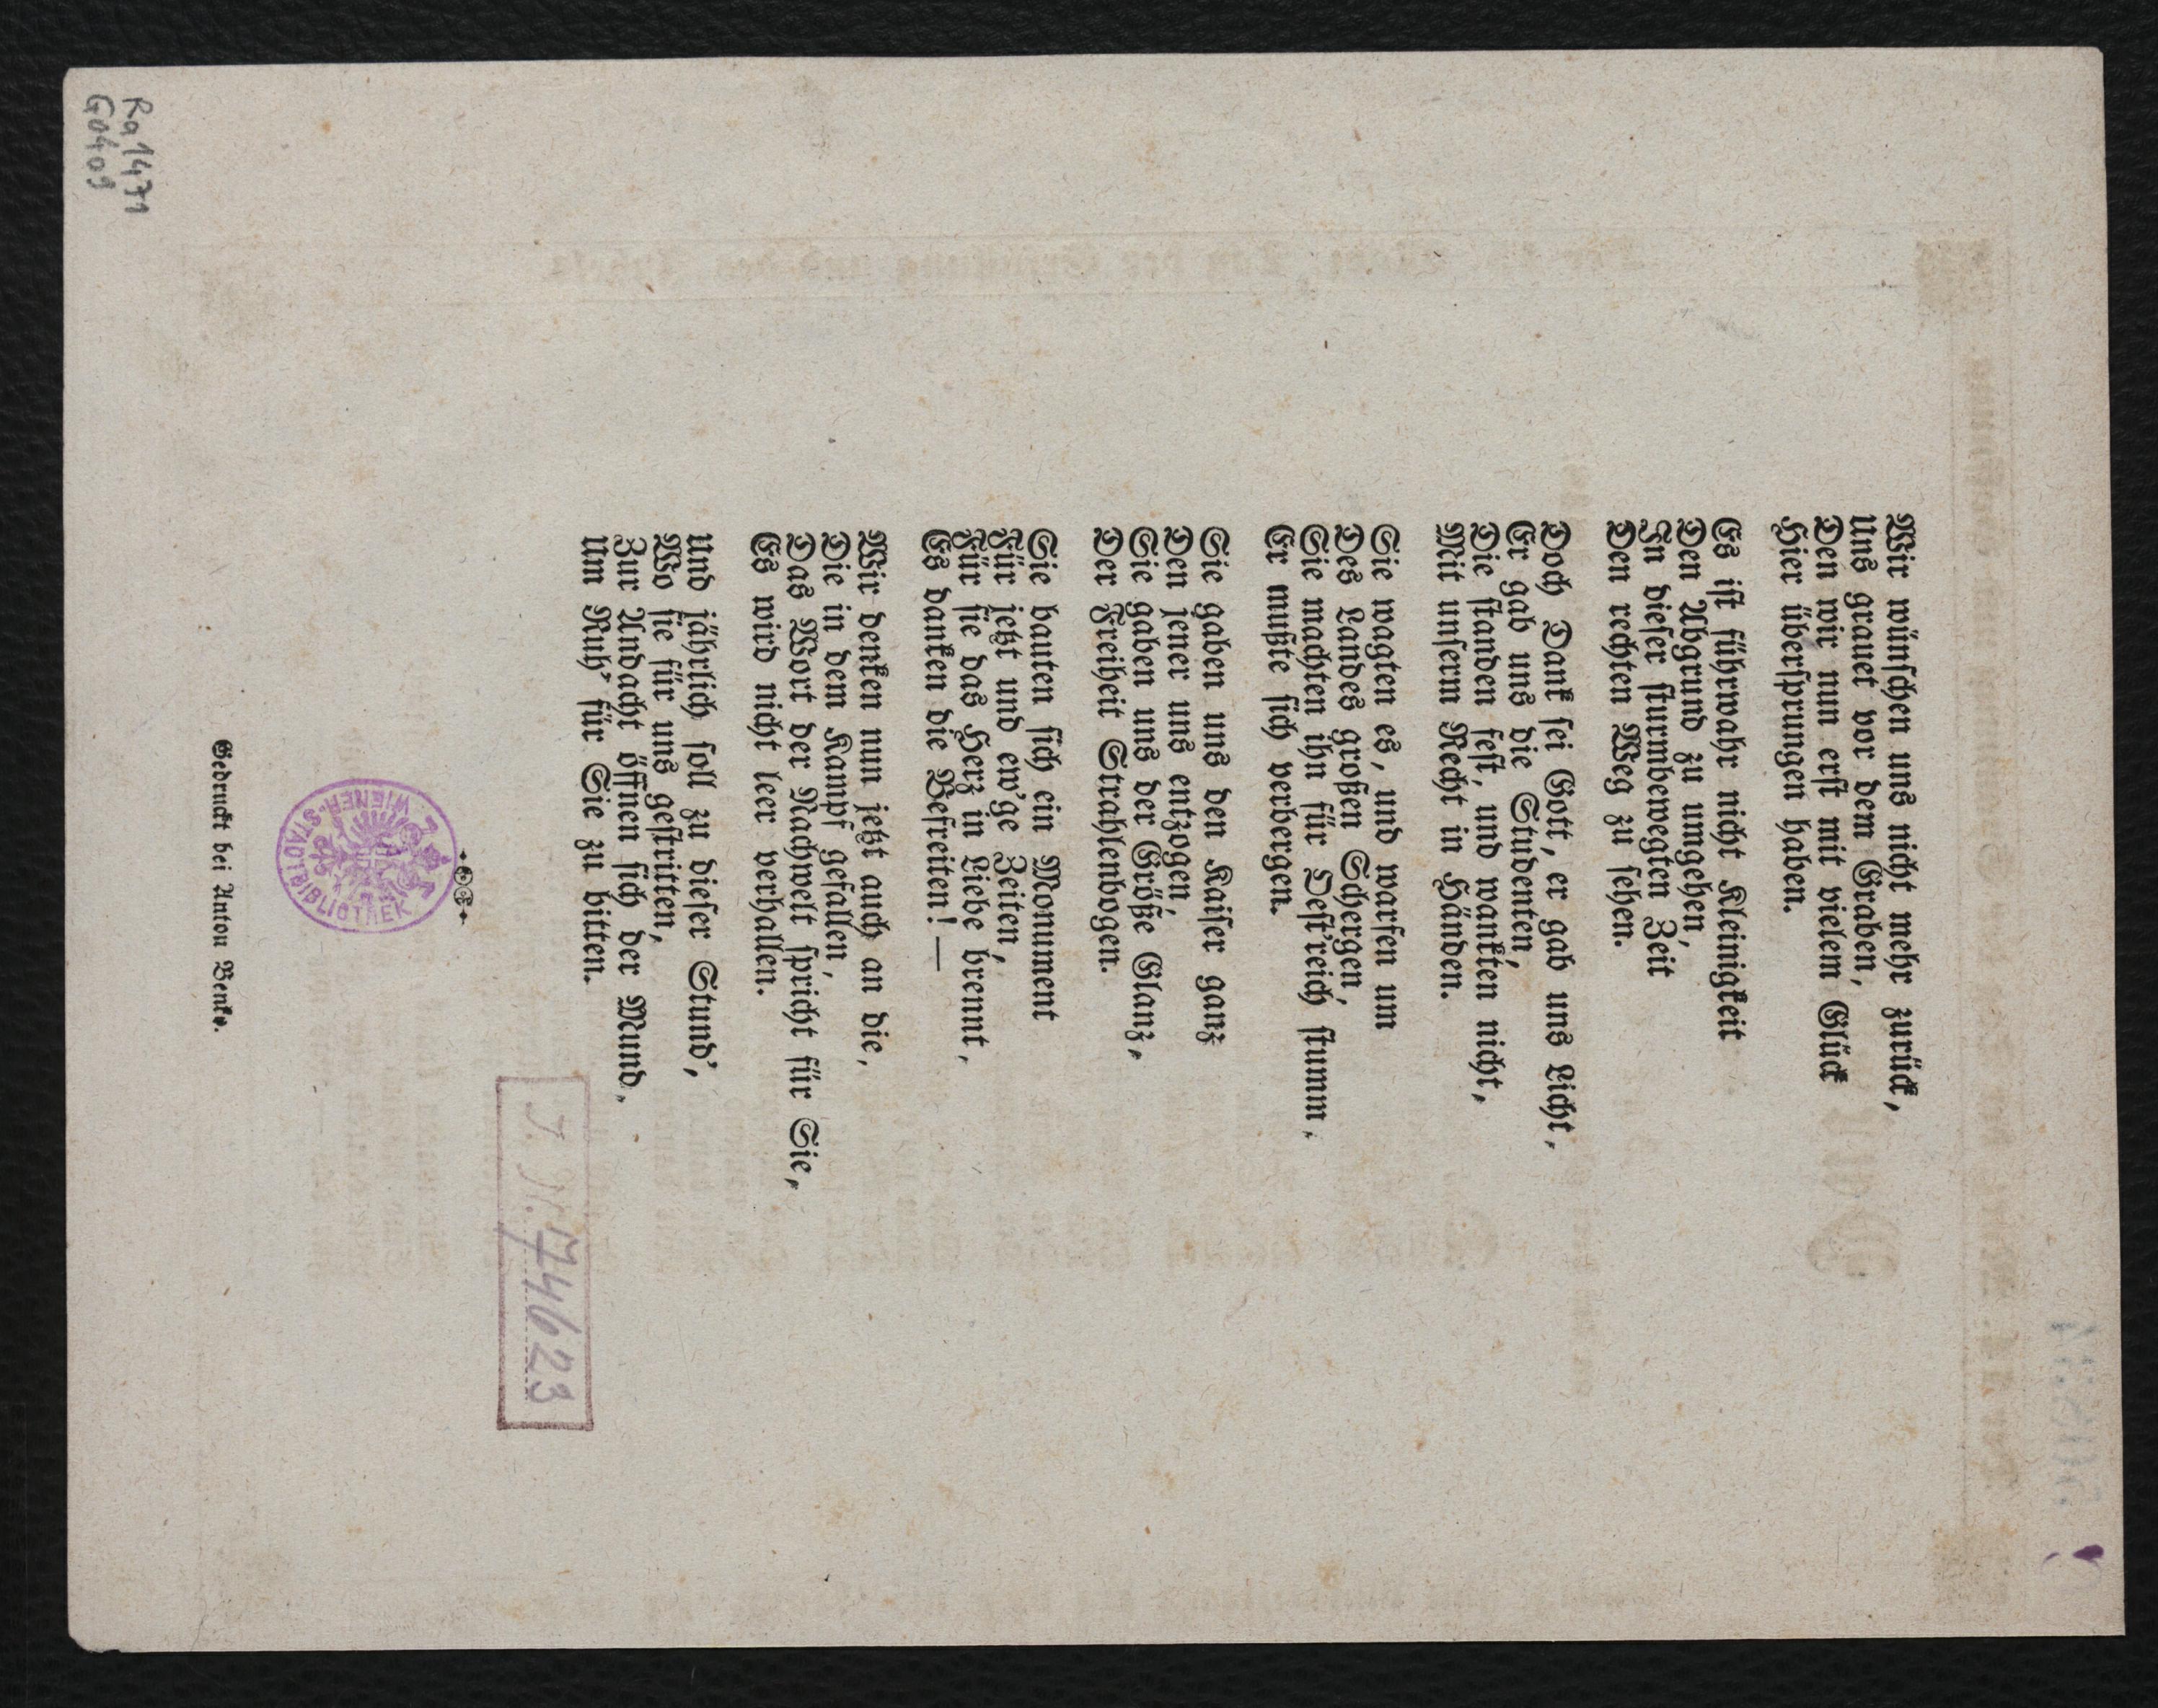 Wir wünschen uns nicht mehr zurück,
Uns grauet vor dem Graben,
Den wir nun erst mit vielem Glück
Hier übersprungen haben.
Es ist führwahr nicht Kleinigkeit
Den Abgrund zu umgehen,
In dieser sturmbewegten Zeit
Den rechten Weg zu sehen.
Doch Dank sei Gott, er gab uns Licht,
Er gab uns die Studenten,
Die standen fest, und wankten nicht,
Mit unserm Recht in Händen.
Sie wagten es, und warfen um
Des Landes großen Schergen,
Sie machten ihn für Oest'reich stumm,
Er mußte sich verbergen.
Sie gaben uns den Kaiser ganz
Den jener uns entzogen,
Sie gaben uns der Größe Glanz,
Der Freiheit Strahlenbogen.
Sie bauten sich ein Monument
Für jetzt und ew'ge Zeiten,
Für sie das Herz in Liebe brennt,
Es danken die Befreiten! —
Wir denken nun jetzt auch an die,
Die in dem Kampf gefallen,
Das Wort der Nachwelt spricht für Sie,
Es wird nicht leer verhallen.
Und jährlich soll zu dieser Stund',
Wo sie für uns gestritten,
Zur Andacht öffnen sich der Mund,
Um Ruh' für Sie zu bitten.
J. Nr. 74623
WIENER STADTBIBLIOTHEK
Gedruckt bei Anton Benko.
Ra 1471
G0409